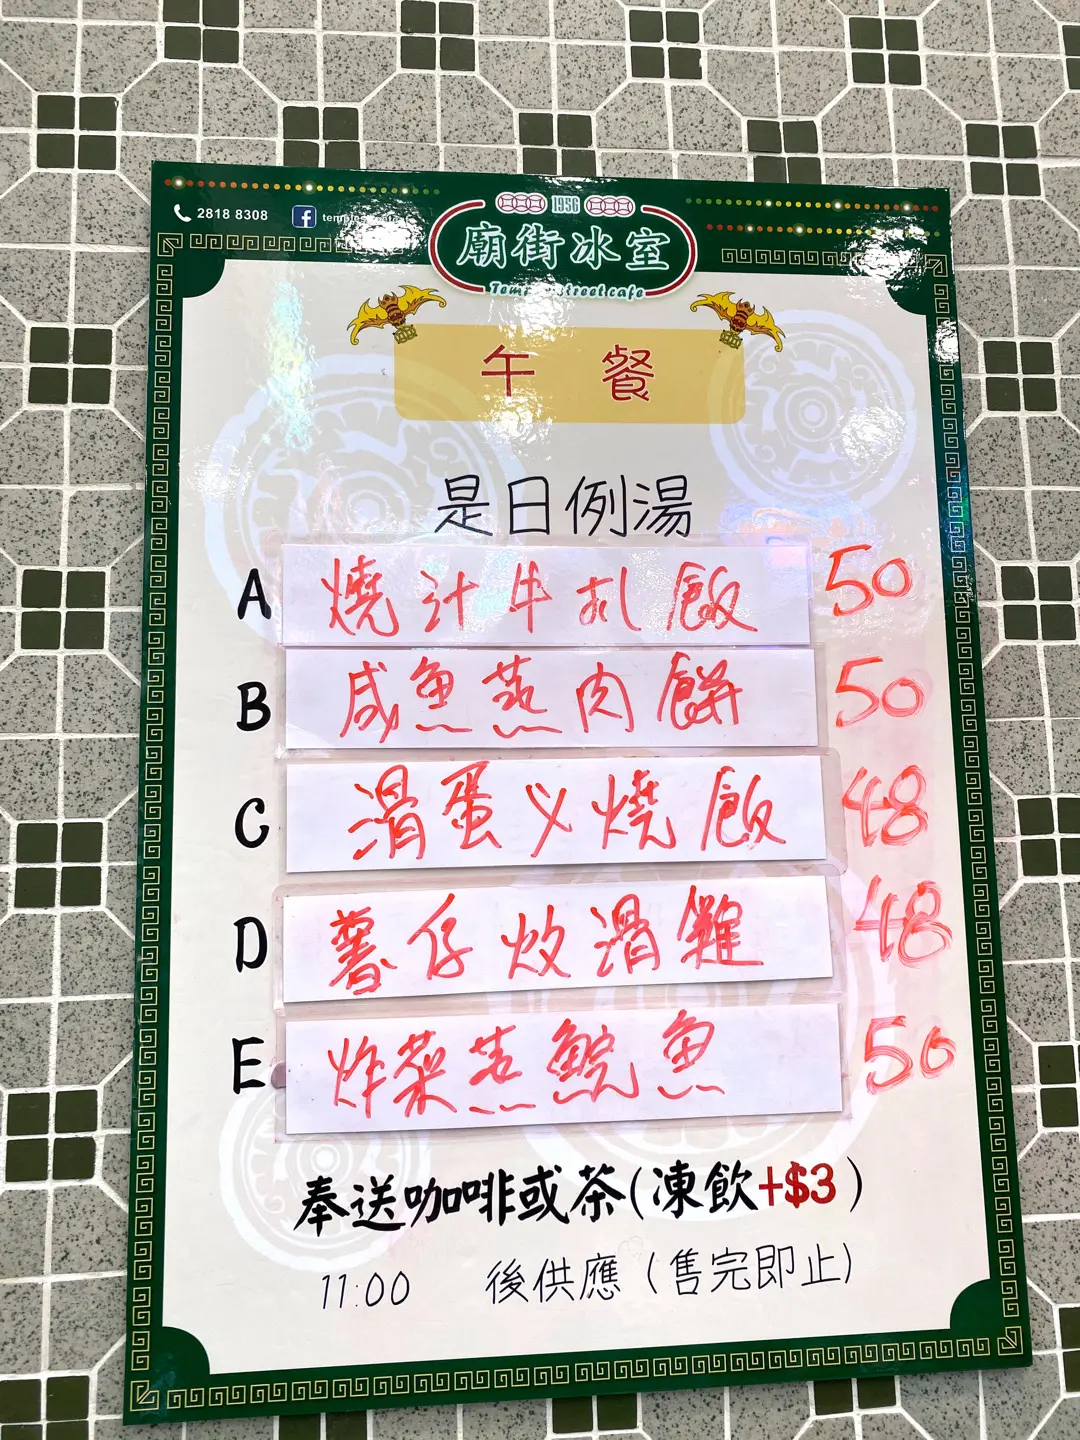 2818 8308
1956
廟街冰室
Temple street cafe
午餐
是日例湯
A 燒汁牛扒飯 50
B 咸魚蒸肉餅 50
C 滑蛋乂燒飯 48
D 薯仔炆滑雞 48
E 炸菜蒸鯇魚 50
奉送咖啡或茶(凍飲+$3)
11:00 後供應(售完即止)